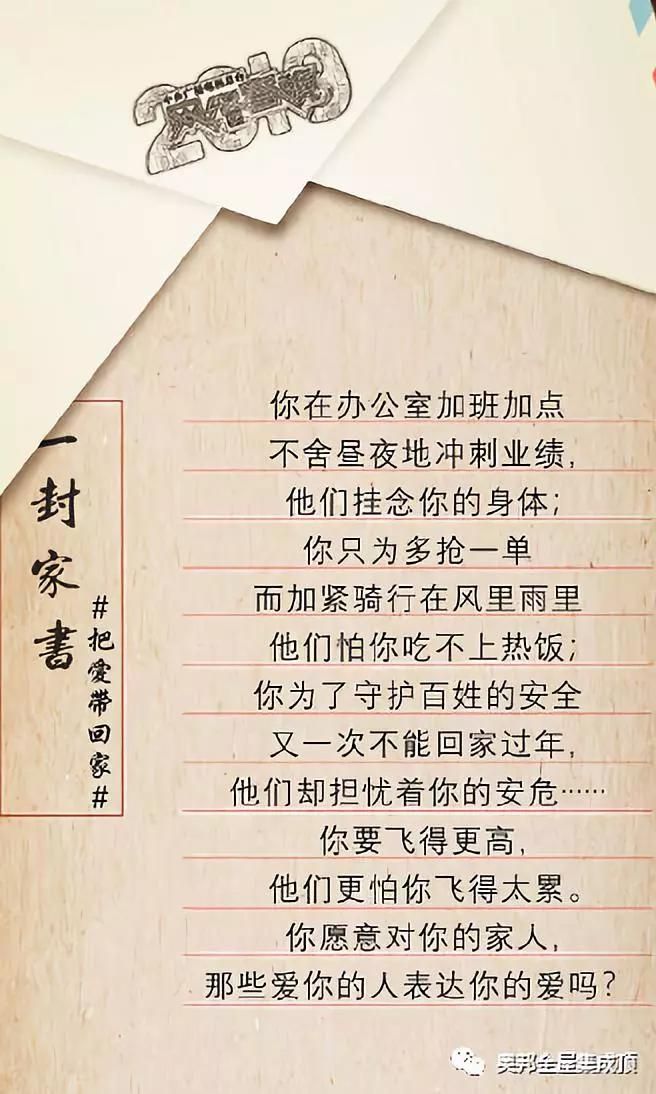 2019
中央广播电视总台
网络春晚
一封家書
#把愛带回家#
你在办公室加班加点
不舍昼夜地冲刺业绩，
他们挂念你的身体；
你只为多抢一单
而加紧骑行在风里雨里
他们怕你吃不上热饭；
你为了守护百姓的安全
又一次不能回家过年，
他们却担忧着你的安危……
你要飞得更高，
他们更怕你飞得太累。
你愿意对你的家人，
那些爱你的人表达你的爱吗？
奥邦全屋集成顶